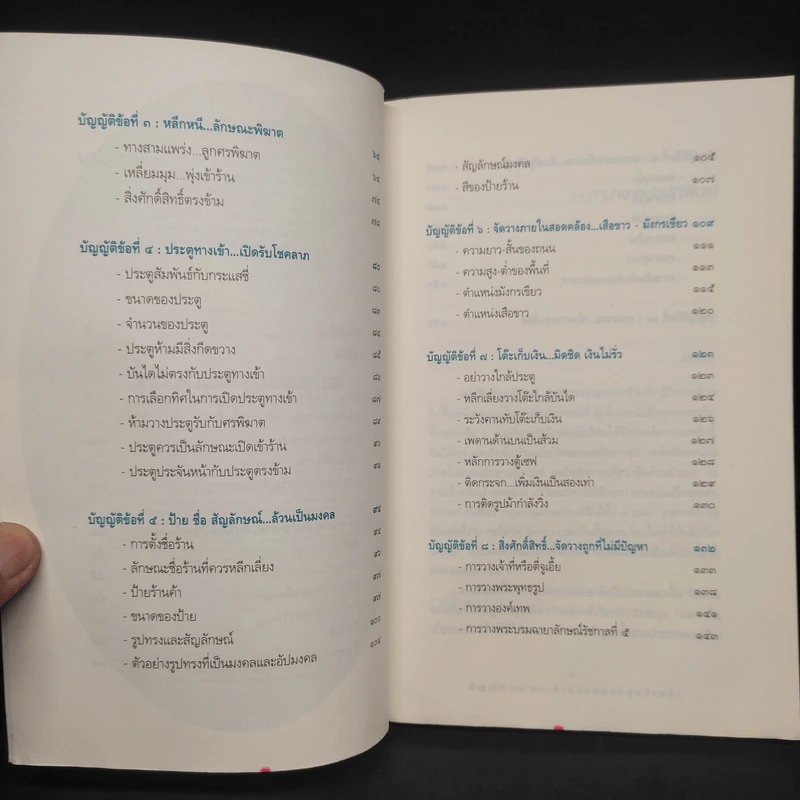 บัญญัติข้อที่ ๓ : หลีกหนี...ลักษณะพิฆาต
- ทางสามแพร่ง...ลูกศรพิฆาต ๖๕
- เหลี่ยมมุม...พุ่งเข้าร้าน
- สิ่งศักดิ์สิทธิ์ตรงข้าม
บัญญัติข้อที่ ๔ : ประตูทางเข้า...เปิดรับโชคลาภ ๘๐
- ประตูสัมพันธ์กับกระแสชี่ ๘๐
- ขนาดของประตู ๘๓
- จำนวนของประตู ๘๔
- ประตูห้ามมีสิ่งกีดขวาง ๘๕
- บันไดไม่ตรงกับประตูทางเข้า ๘๖
- การเลือกทิศในการเปิดประตูทางเข้า ๘๗
- ห้ามวางประตูรับกับศรพิฆาต ๘๙
- ประตูควรเป็นลักษณะเปิดเข้าร้าน ๙๐
- ประตูประจันหน้ากับประตูตรงข้าม ๙๑
บัญญัติข้อที่ ๕ : ป้าย ชื่อ สัญลักษณ์...ล้วนเป็นมงคล ๙๔
- การตั้งชื่อร้าน ๙๔
- ลักษณะชื่อร้านที่ควรหลีกเลี่ยง ๙๖
- ป้ายร้านค้า ๙๗
- ขนาดของป้าย ๙๗
- รูปทรงและสัญลักษณ์ ๑๐๐
- ตัวอย่างรูปทรงที่เป็นมงคลและอัปมงคล ๑๐๔
- สัญลักษณ์มงคล ๑๐๕
- สีของป้ายร้าน ๑๐๗
บัญญัติข้อที่ ๖ : จัดวางภายในสอดคล้อง...เสือขาว - มังกรเขียว ๑๐๙
- ความยาว-สั้นของถนน ๑๑๑
- ความสูง-ต่ำของพื้นที่ ๑๑๓
- ตำแหน่งมังกรเขียว ๑๑๕
- ตำแหน่งเสือขาว ๑๒๐
บัญญัติข้อที่ ๗ : โต๊ะเก็บเงิน...มิดชิด เงินไม่รั่ว ๑๒๓
- อย่าวางใกล้ประตู ๑๒๓
- หลีกเลี่ยงวางโต๊ะใกล้บันได ๑๒๔
- ระวังคานทับโต๊ะเก็บเงิน ๑๒๖
- เพดานด้านบนเป็นส้วม ๑๒๗
- หลักการวางตู้เซฟ ๑๒๘
- ติดกระจก...เพิ่มเงินเป็นสองเท่า ๑๒๙
- การติดรูปม้ากำลังวิ่ง ๑๓๐
บัญญัติข้อที่ ๘ : สิ่งศักดิ์สิทธิ์...จัดวางถูกที่ไม่มีปัญหา ๑๓๒
- การวางเจ้าที่หรือตี่จูเอี้ย ๑๓๓
- การวางพระพุทธรูป ๑๓๘
- การวางองค์เทพ ๑๔๑
- การวางพระบรมฉายาลักษณ์รัชกาลที่ ๕ ๑๔๓